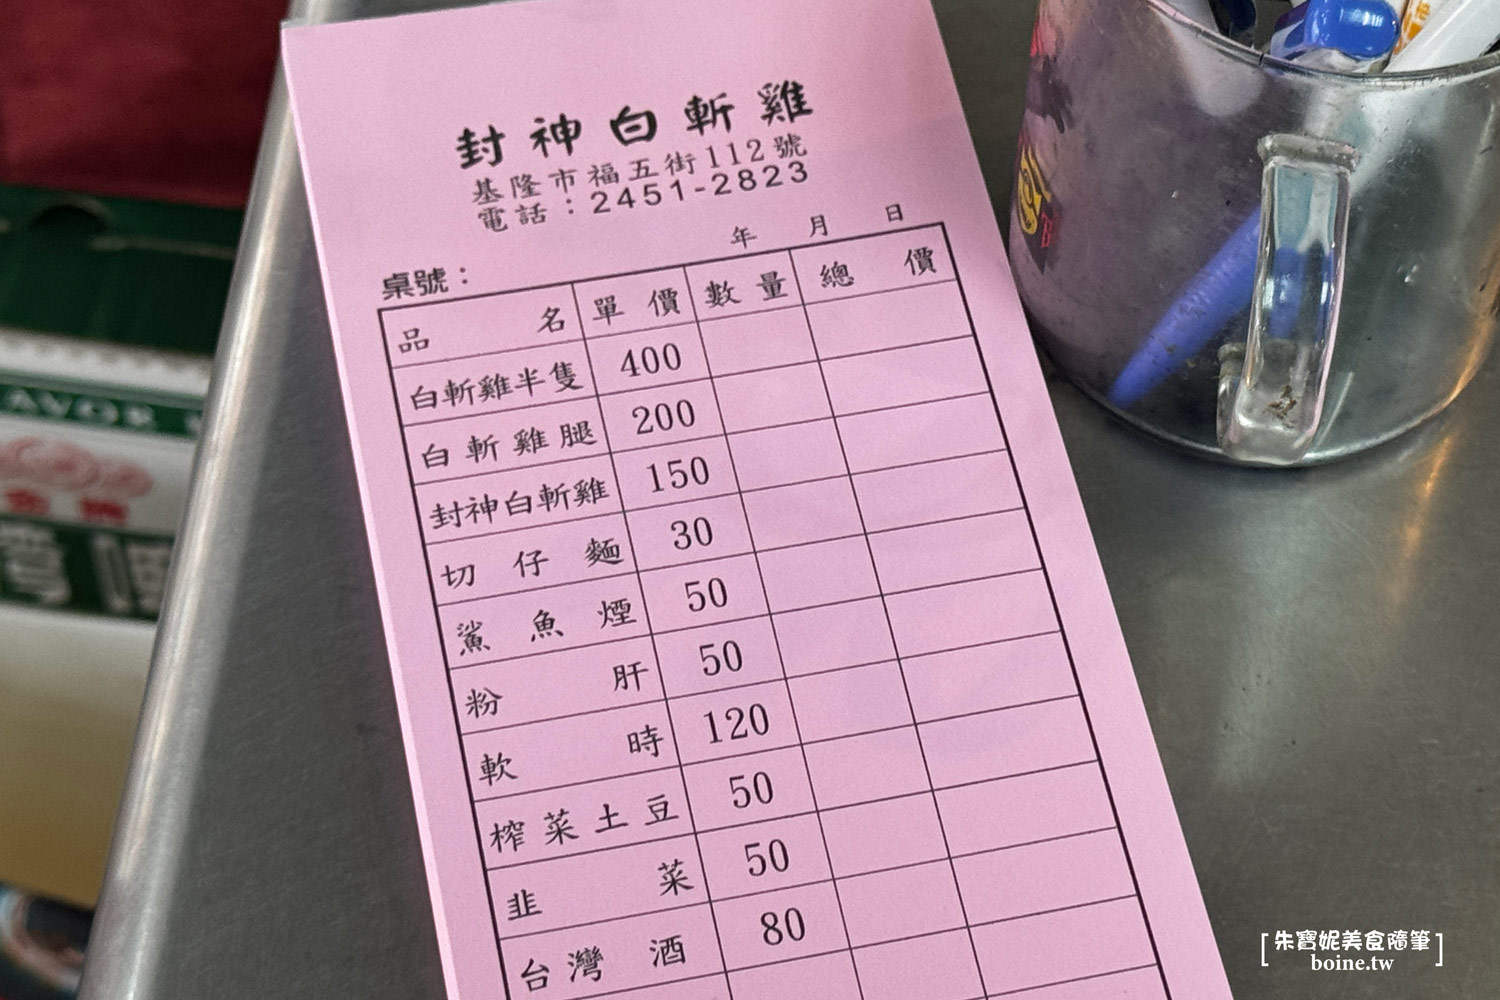 封神白斬雞
基隆市福五街112號
電話：2451-2823
年 月 日
桌號：
品名 單價 數量 總價
白斬雞半隻 400
白斬雞腿 200
封神白斬雞 150
切仔麵 30
鯊魚煙 50
粉肝 50
軟時 120
榨菜土豆 50
韭菜 50
台灣酒 80
AVOR
金牌
[朱寶妮美食隨筆]
boine.tw